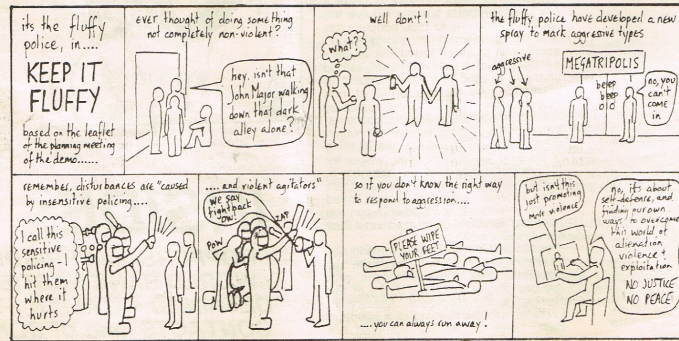 its the fluffy
police, in....
KEEP IT
FLUFFY
based on the leaflet
of the planning meeting
of the demo......
ever thought of doing something
not completely non-violent?
hey, isn't that
John Major walking
down that dark
alley alone?
well don't!
what?
the fluffy police have developed a new
spray to mark aggressive types
aggressive
MEGATRIPOLIS
beeep
beep
no, you
can't
come
in
remember, disturbances are "caused
by insensitive policing....
I call this
sensitive
policing - I
hit them
where it
hurts
.... and violent agitators"
we say
fight back
OW!
POW
ZAP
so if you don't know the right way
to respond to aggression....
PLEASE WIPE
YOUR FEET
.... you can always run away!
but isn't this
just promoting
more violence
no, it's about
self-defense, and
finding our own
ways to overcome
this world of
alienation
violence +
exploitation
NO JUSTICE
NO PEACE